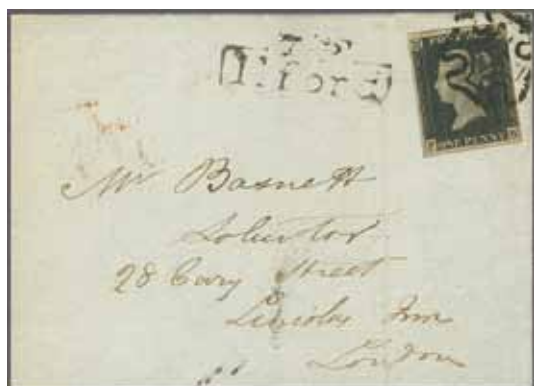 T.P
Ilford
ONE PENNY
Mr Basnett
Solicitor
28 Cary Street
Lincolns Inn
London